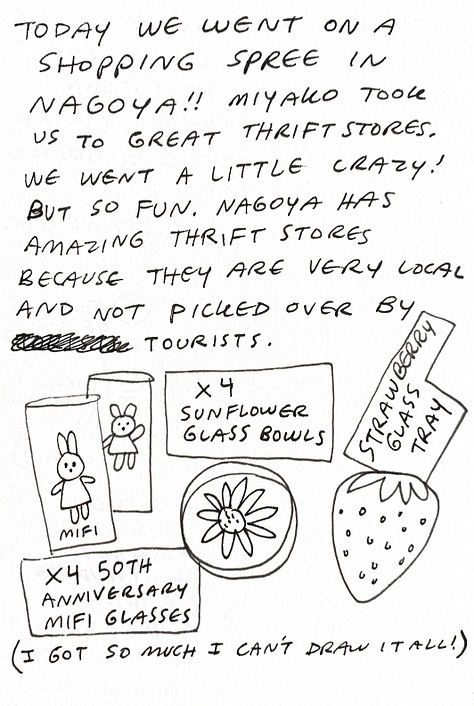 TODAY WE WENT ON A
SHOPPING SPREE IN
NAGOYA!! MIYAKO TOOK
US TO GREAT THRIFT STORES.
WE WENT A LITTLE CRAZY!
BUT SO FUN. NAGOYA HAS
AMAZING THRIFT STORES
BECAUSE THEY ARE VERY LOCAL
AND NOT PICKED OVER BY
TOURISTS.
X4
SUNFLOWER
GLASS BOWLS
STRAWBERRY
GLASS
TRAY
MIFI
X4 50TH
ANNIVERSARY
MIFI GLASSES
(I GOT SO MUCH I CAN'T DRAW IT ALL!)